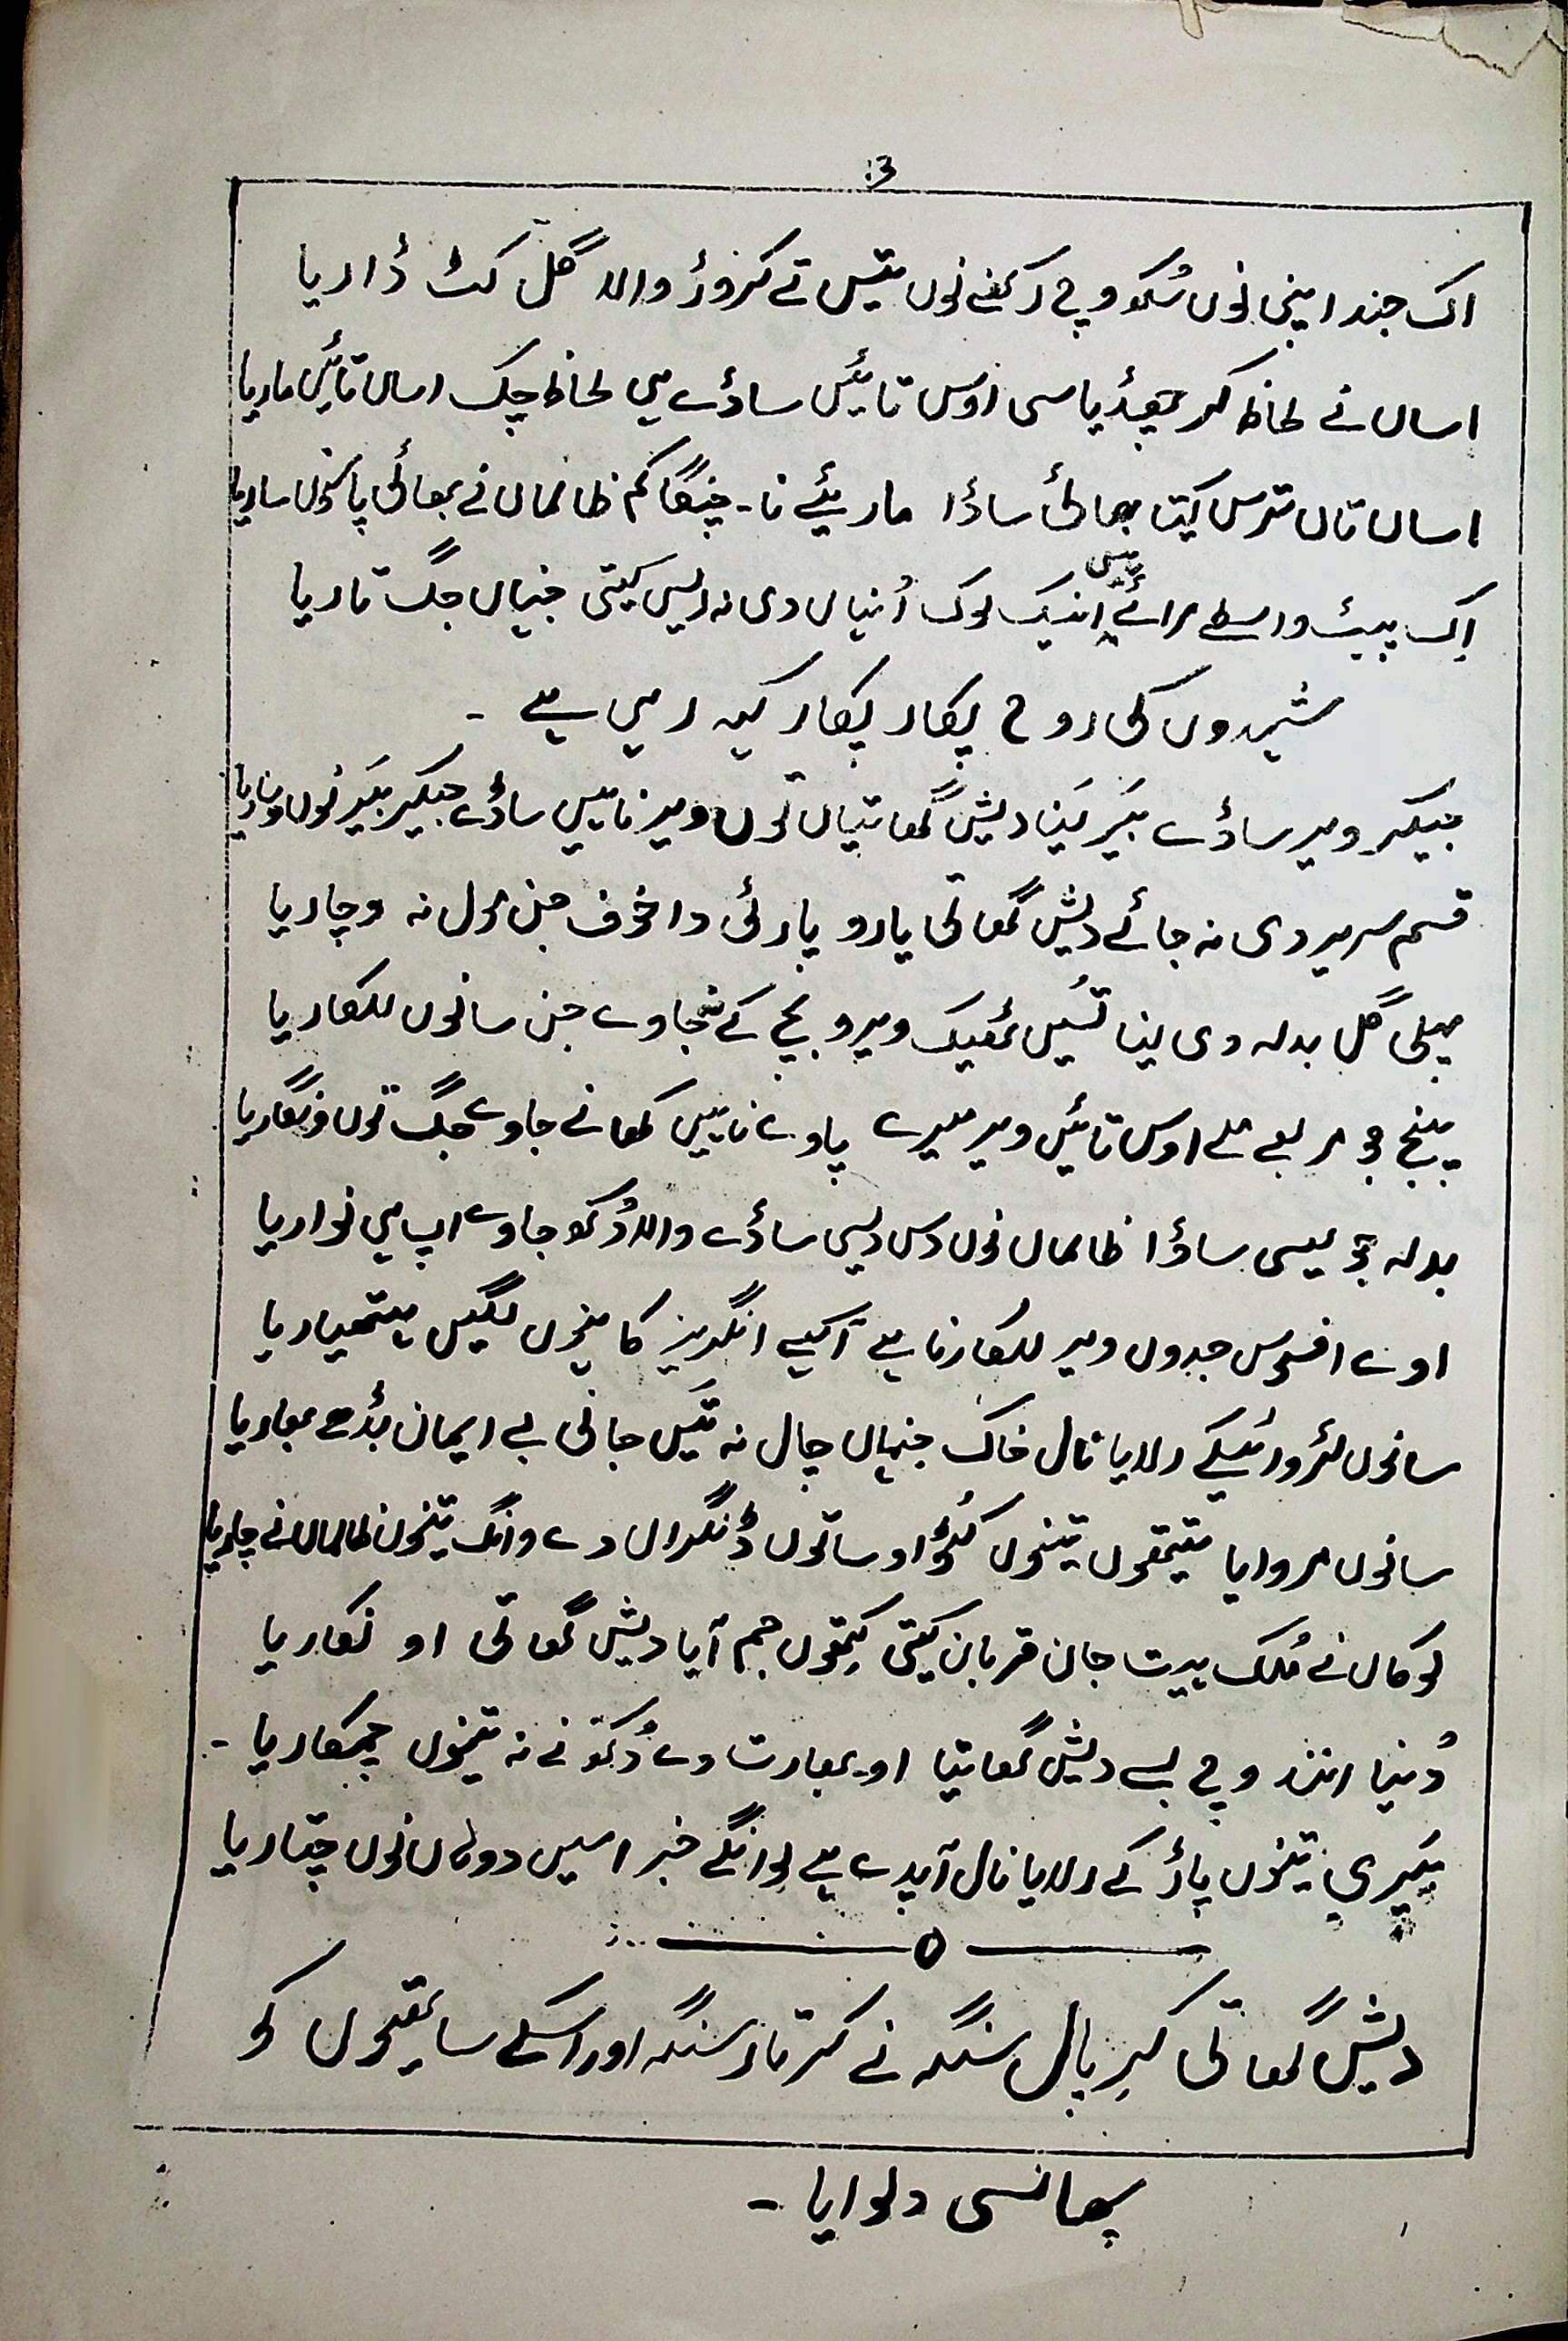 3:
اک جند اپنی نوں سُکھ وچ رکھنے نوں تیس تے کروڑ والا گل کٹ ڈاریا
اساں نے لحاظ کر چھڈیا سی اوس تائیں ساڈے ہی لحاظ چک اساں تائیں ماریا
اساں تاں ترس کیتا بھائی ساڈا ماریئے نا۔ چنگا کم ظالماں نے بھائی پا نوں ساریا
اِک پیٹ واسطے مرائے تیں انیک لوک اُنہاں دی نہ ریس کیتی جنہاں جگ تاریا
شہیدوں کی روح پکار پکار کہہ رہی ہے ۔
جیکر ویر ساڈے بَیر لَینا دیش گھاتیاں توں ویر ناہیں ساڈے جیکر بَیر نوں وساریا
قسم سریر دی نہ جائے دیش گھاتی یارو پارٹی دا خوف جن مول نہ وچاریا
پہلی گل بدلہ دی لینا تُسیں ٹھیک ویرو بچ کے نہ جاوے جن سانوں للکاریا
پنج جو مربعے ملے اوس تائیں ویر میرے پاوے ناہیں کھانے جاوے جگ توں فنگاریا
بدلہ جو لیسی ساڈا ظالماں نوں دس دیسی ساڈے والا دُکھ جاوے اپ ہی نواریا
اوے افسوس جدوں ویر للکارنا ہے آکھے انگریز کا مینوں لگیں ہتھیاریا
سانوں لٹرورئیکے رلایا نال خاک جنہاں چال نہ تَیں جانی بے ایمان بُڈھے بھاریا
سانوں مروایا ہتھوں تینوں کُٹوا او ساتوں ڈنگراں دے وانگ تینوں ظالماں نے چاریا
لوکاں نے مُلک ہیت جان قربان کیتی کِتھوں جم آیا دیش گھاتی او نکاریا
دُنیا انند وچ بسے دیش گھاتیا او بھارت دے دُکھ نے نہ تینوں چمکاریا ۔
بَیری تینوں پاڑ کے رلایا نال آپدے ہے لوانگے خبر اسیں دوناں نوں چتاریا
دیش گھاتی کِرپال سنگھ نے کرتار سنگھ اور اسکے ساتھیوں کو
پھانسی دلوایا ۔